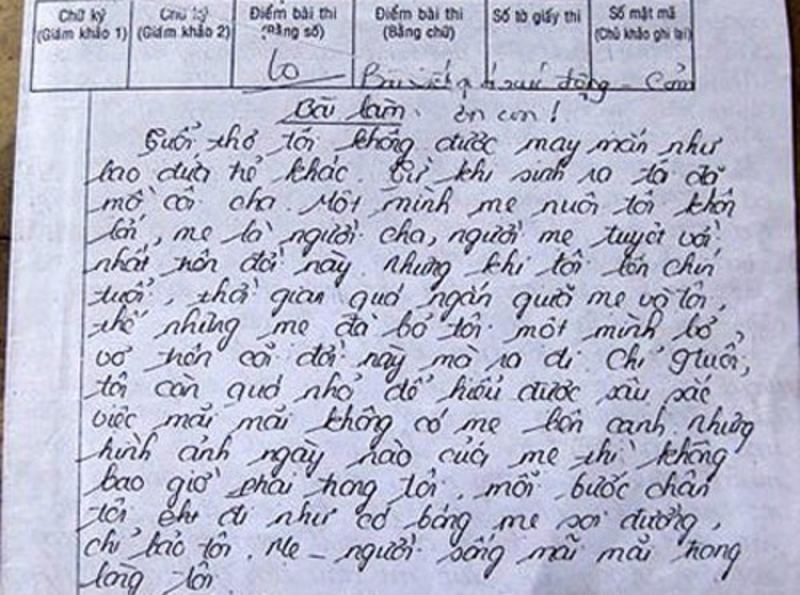 Chữ ký
(Giám khảo 1)
Chữ ký
(Giám khảo 2)
Điểm bài thi
(Bằng số)
Điểm bài thi
(Bằng chữ)
Số tờ giấy thi
Số mật mã
(Chủ khảo ghi lại)
10
Bài viết quá xúc động - Cảm
Bài làm. ơn con!
Tuổi thơ tôi không được may mắn như
bao đứa trẻ khác. Từ khi sinh ra tôi đã
mồ côi cha. Một mình mẹ nuôi tôi khôn
lớn, mẹ là người cha, người mẹ tuyệt vời
nhất trên đời này. Nhưng khi tôi lên chín
tuổi, thời gian quá ngắn giữa mẹ và tôi,
thế nhưng mẹ đã bỏ tôi một mình bơ
vơ trên cõi đời này mà ra đi. Chỉ 9 tuổi,
tôi còn quá nhỏ để hiểu được sâu sắc
việc mãi mãi không có mẹ bên cạnh. Nhưng
hình ảnh ngày nào của mẹ thì không
bao giờ phai trong tôi. Mỗi bước chân
tôi đi như có bóng mẹ soi đường,
chỉ bảo tôi. Mẹ - người sống mãi mãi trong
lòng tôi.